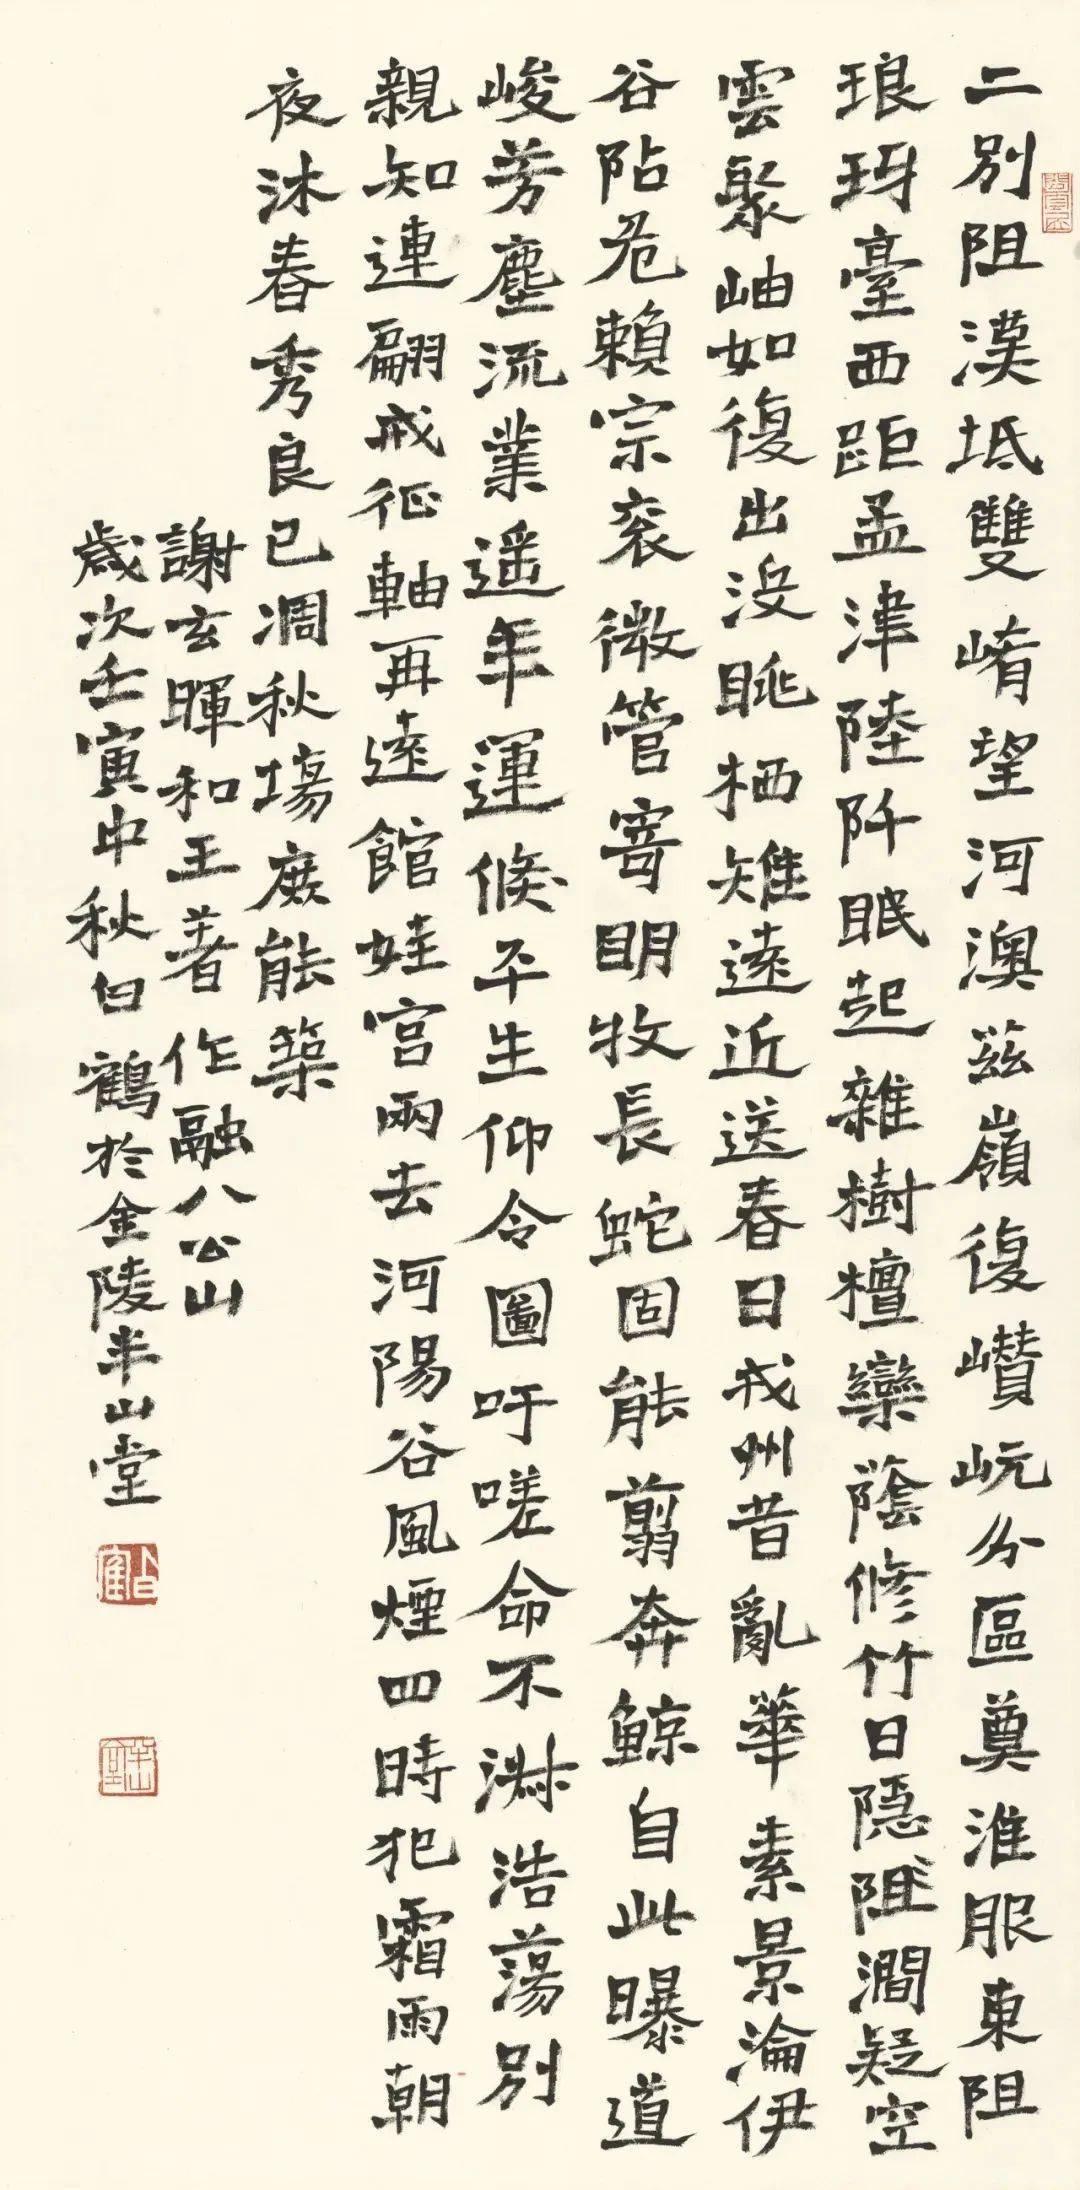 二別阻漢坻雙崤望河澳茲嶺復巑岏分區奠淮服東阻
琅玡臺西距孟津陸阡眠起雜樹檀欒蔭修竹日隐阻澗疑空
雲聚岫如復出沒眺栖雉遠近送春日戎州昔亂華素景淪伊
谷阽危賴宗袞微管寄明牧長蛇固能翦奔鯨自此曝道
峻芳塵流業遥年運倏平生仰令圖吁嗟命不淑浩蕩別
親知連翩戒征軸再遠館娃宮兩去河陽谷風煙四時犯霜雨朝
夜沐春秀良已凋秋場庶能築
謝玄暉和王著作融八公山
歲次壬寅中秋白鶴於金陵半山堂